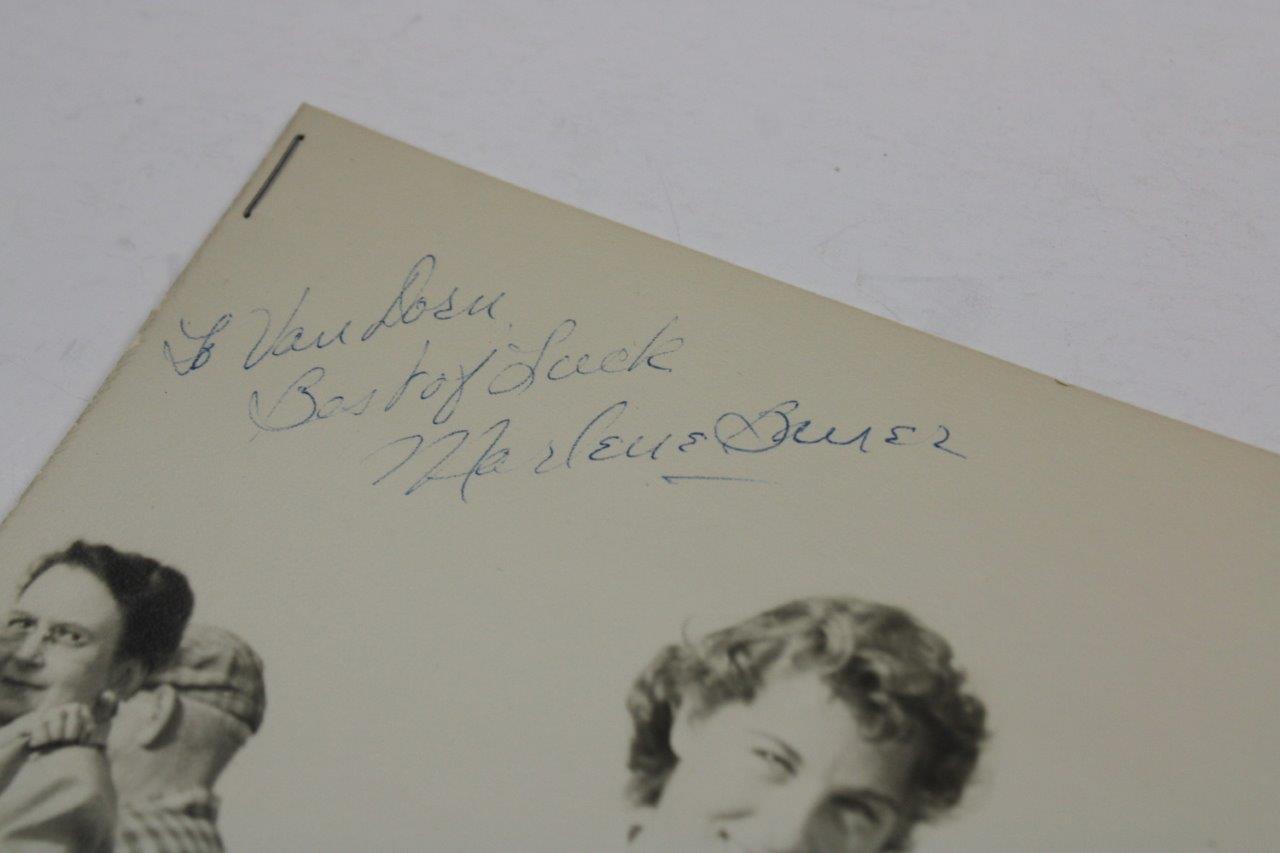 To Van Dorn
Best of Luck
Marlene Bauer